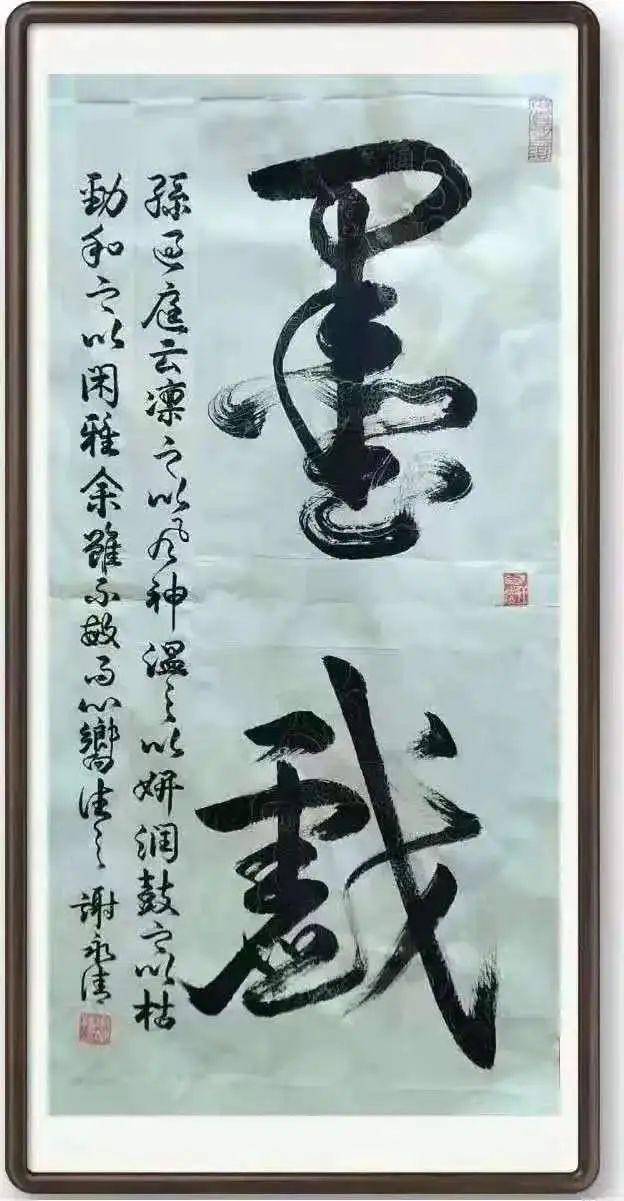 墨戲
孫過庭云凛之以風神温之以妍润鼓之以枯
勁和之以閑雅余雖不敏而心嚮往之
謝永清